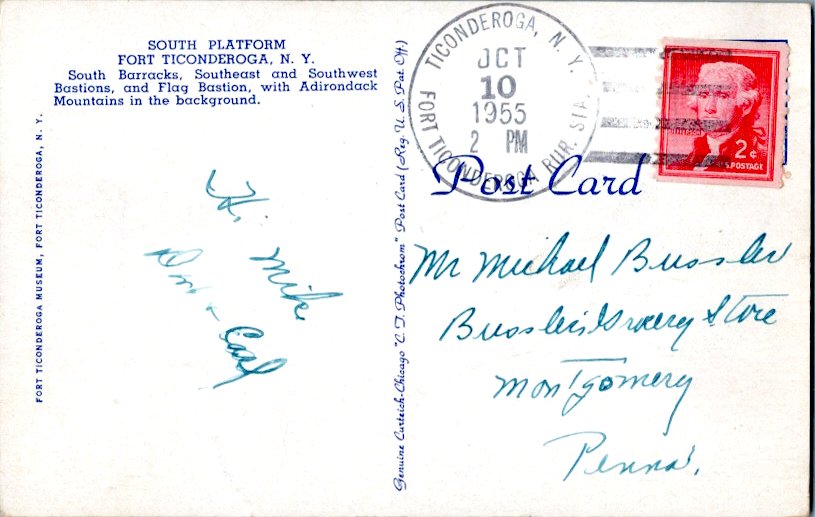 SOUTH PLATFORM
FORT TICONDEROGA, N. Y.
South Barracks, Southeast and Southwest
Bastions, and Flag Bastion, with Adirondack
Mountains in the background.
FORT TICONDEROGA MUSEUM, FORT TICONDEROGA, N. Y.
Hi Mike
Genuine Curteich-Chicago "C. T. Photochrom" Post Card (Reg. U. S. Pat. Off.)
TICONDEROGA, N. Y.
OCT
10
1955
2 PM
FORT TICONDEROGA RUR. STA.
2¢
U.S. POSTAGE
Post Card
Mr Michael Bussler
Bussler's Grocery Store
Montgomery
Penna.